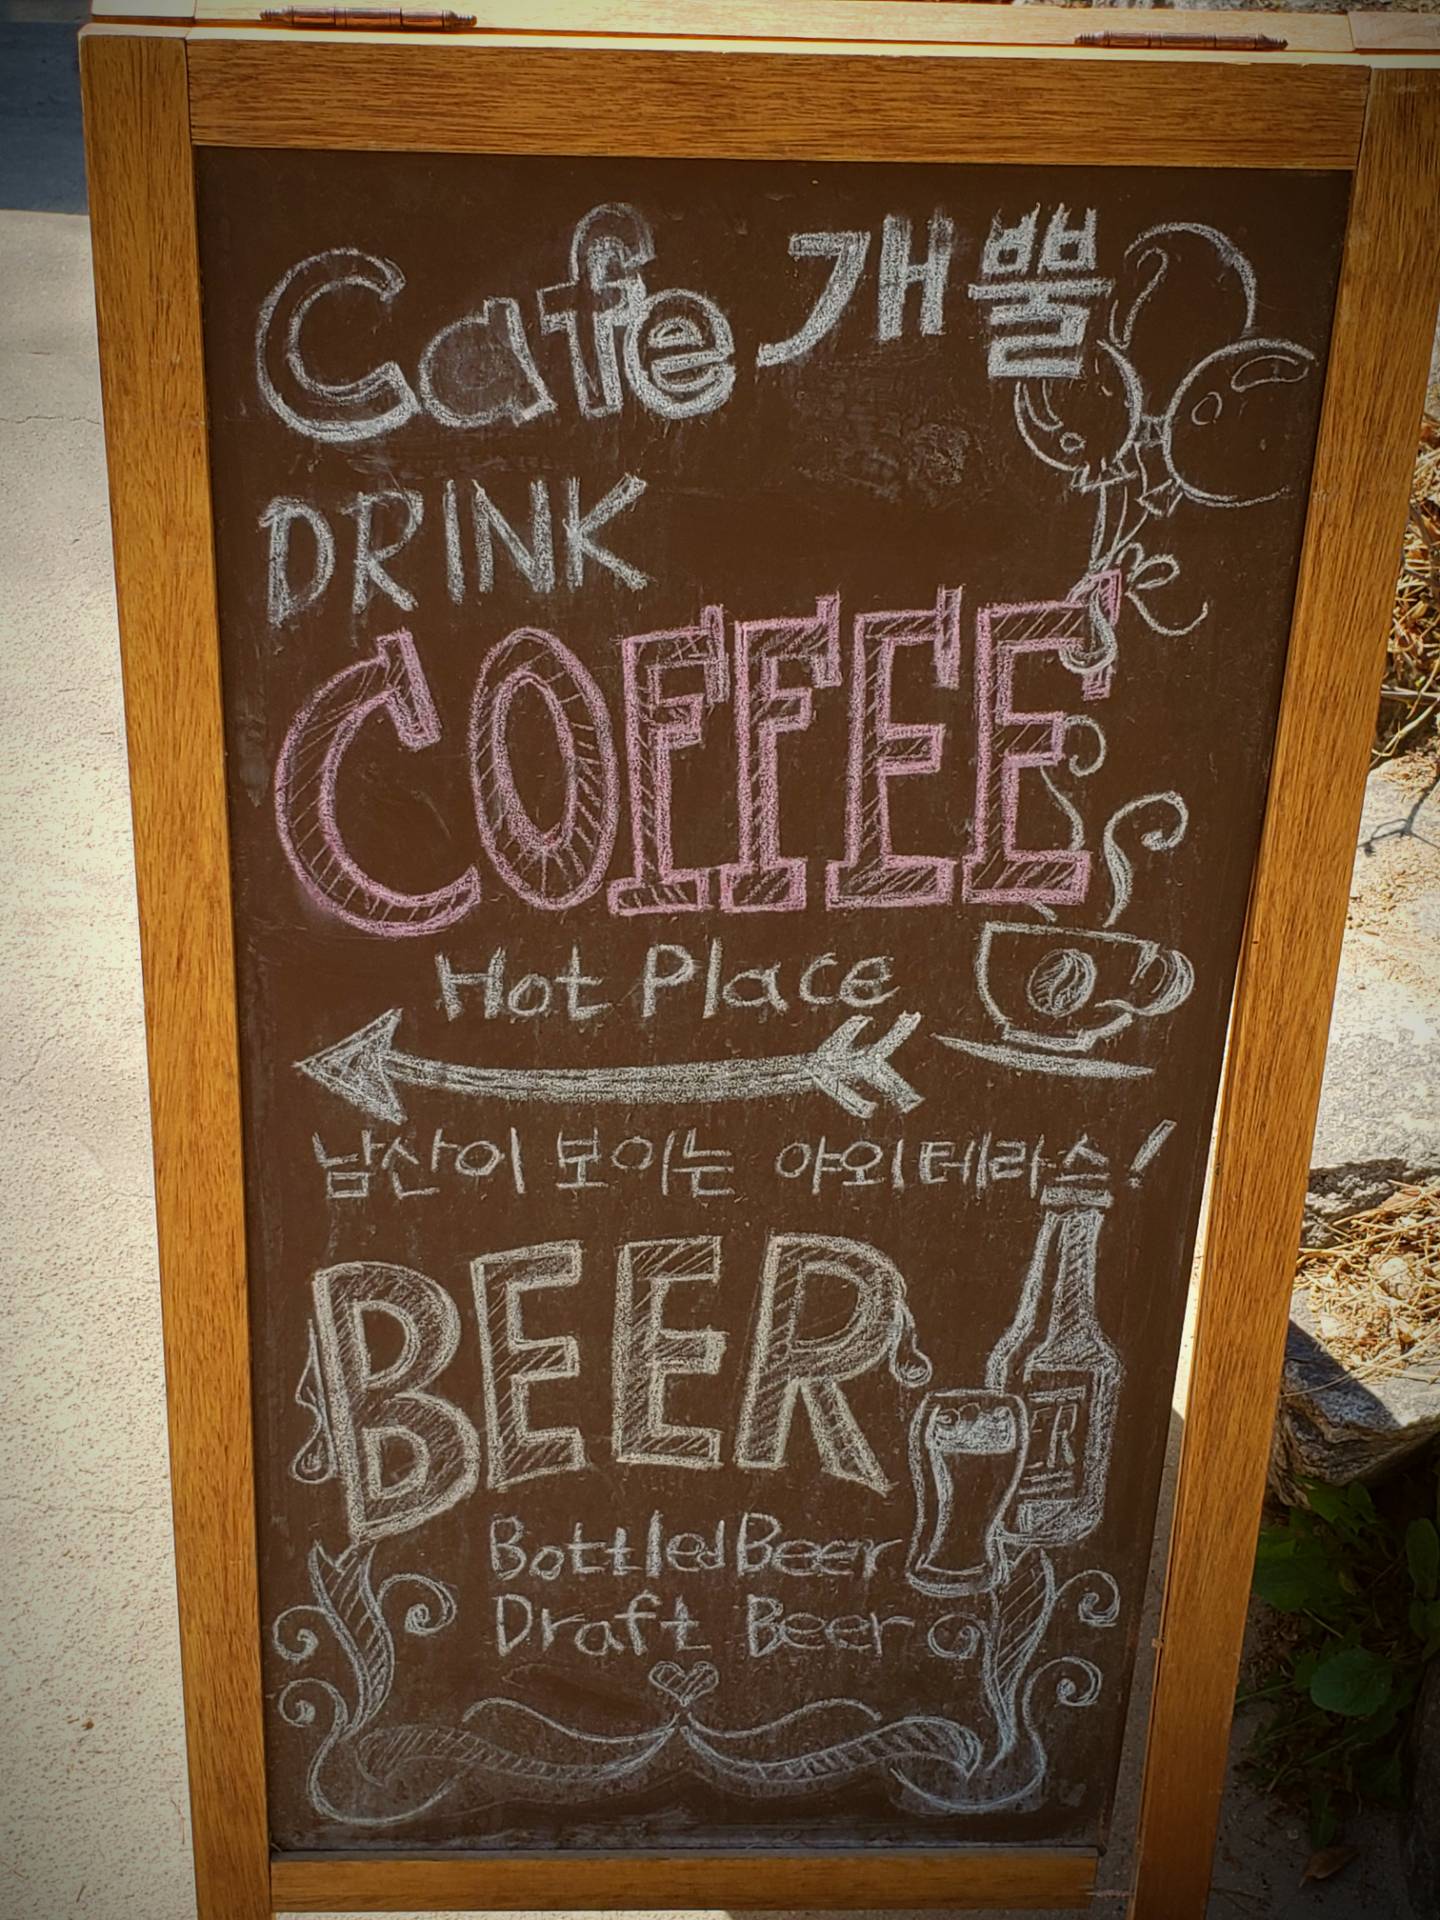 Cafe 개뿔
DRINK
COFFEE
Hot Place
남산이 보이는 야외테라스!
BEER
ER
Bottled Beer
Draft Beer